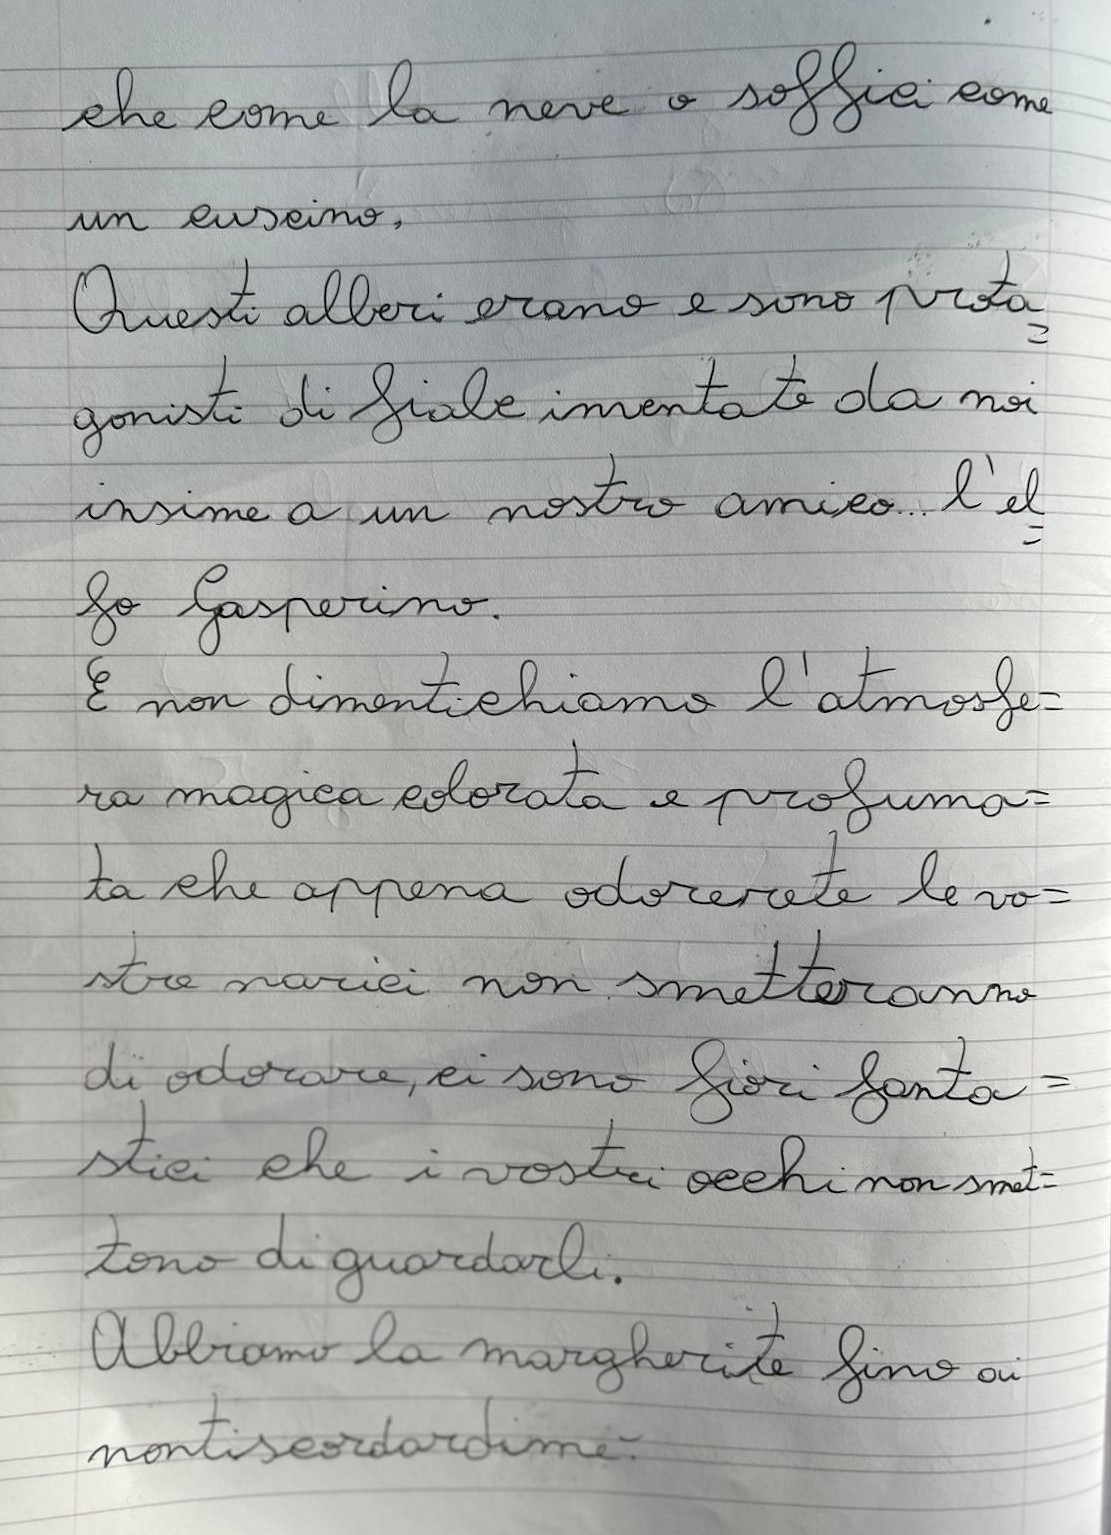 che come la neve o soffici come
un cuscino.
Questi alberi erano e sono prota=
gonisti di fiale inventate da noi
insime a un nostro amico... l'el=
fo Gasperino.
E non dimentichiamo l'atmosfe=
ra magica colorata e profuma=
ta che appena odorerete le vo=
stre narici non smetteranno
di odorare, ci sono fiori fanta=
stici che i vostri occhi non smet=
tono di guardarli.
Abbiamo la margherite fino ai
nontiscordardime.